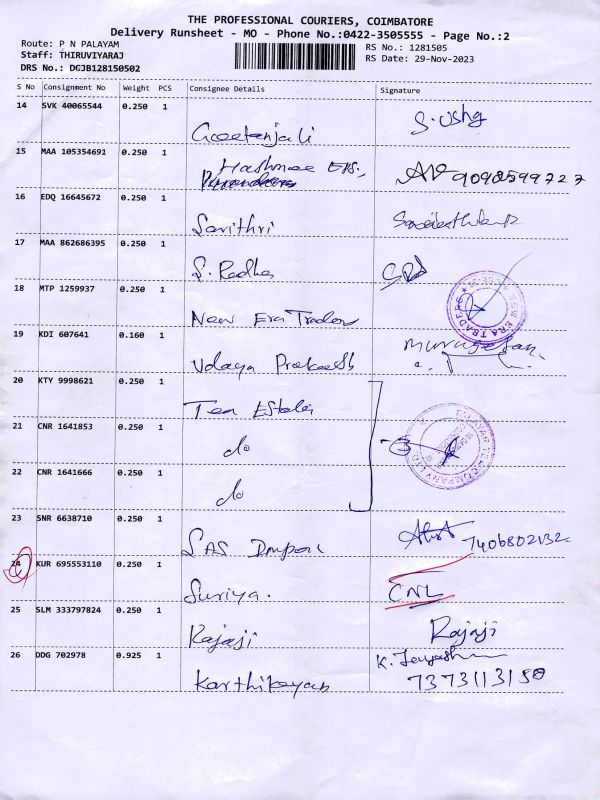 THE PROFESSIONAL COURIERS, COIMBATORE
Delivery Runsheet - MO - Phone No.:0422-3505555 - Page No.:2
Route: P N PALAYAM
Staff: THIRUVIYARAJ
DRS No.: DGJB128150502
RS No.: 1281505
RS Date: 29-Nov-2023
S No Consignment No Weight PCS Consignee Details Signature
14 SVK 40065544 0.250 1
Geetanjali S. Usha
15 MAA 105354691 0.250 1
Hashmee
9098599727
16 EDQ 16645672 0.250 1
Savithri
17 MAA 862686395 0.250 1
S. Radha
18 MTP 1259937 0.250 1
New Era Traders
NEW ERA TRADERS
19 KDI 607641 0.160 1
Udaya Prakash Murugesan
20 KTY 9998621 0.250 1
Tea Estates
21 CNR 1641853 0.250 1
do
22 CNR 1641666 0.250 1
do
23 SNR 6638710 0.250 1
SAS
24 KUR 695553110 0.250 1
Suriya. CNL
25 SLM 333797824 0.250 1
Rajaji Rajaji
26 DDG 702978 0.925 1
Karthikeyan 7373113150